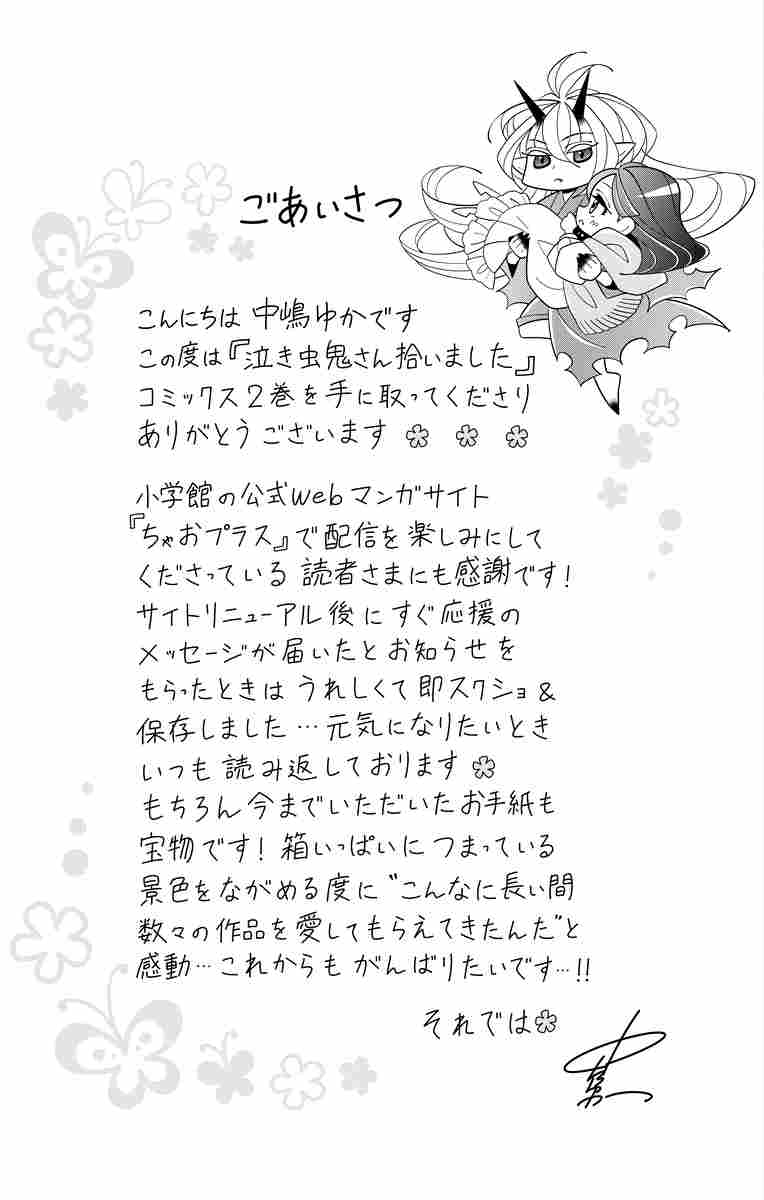 ごあいさつ
こんにちは 中嶋ゆかです
この度は『泣き虫鬼さん拾いました』
コミックス2巻を手に取ってくださり
ありがとうございます
小学館の公式webマンガサイト
『ちゃおプラス』で配信を楽しみにして
くださっている 読者さまにも感謝です!
サイトリニューアル後にすぐ応援の
メッセージが届いたとお知らせを
もらったときは うれしくて即スクショ&
保存しました…元気になりたいとき
いつも読み返しております
もちろん今までいただいたお手紙も
宝物です!箱いっぱいにつまっている
景色をながめる度に"こんなに長い間
数々の作品を愛してもらえてきたんだ"と
感動…これからもがんばりたいです…!!
それでは